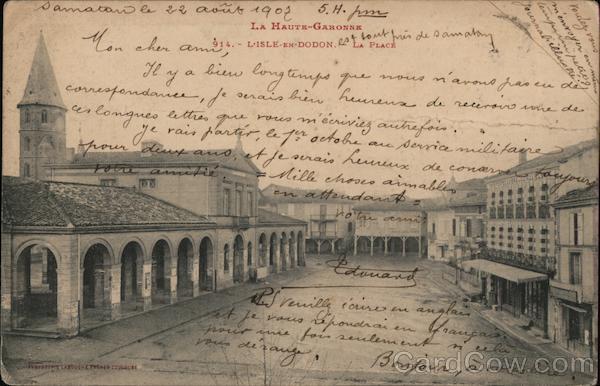 Samatan le 22 août 1907 5.H. pm
La Haute-Garonne
914. - L'ISLE-EN-DODON. La Place
est tout près de Samatan
Mon cher ami,
Il y a bien longtemps que nous n'avons pas eu de
correspondance, je serais bien heureux de recevoir une de
ces longues lettres que vous m'écriviez autrefois.
Je vais partir le 1er octobre au service militaire
pour deux ans, et je serais heureux de conserver toujours
votre amitié = Mille choses aimables
en attendant =
votre ami
Edouard
P.S. Veuillez écrire en anglais
et je vous répondrai en français
pour une fois seulement si cela
vous dérange.
Bonjour à
PHOTOTYPIE LABOUCHE FRÈRES TOULOUSE
CardCow.com